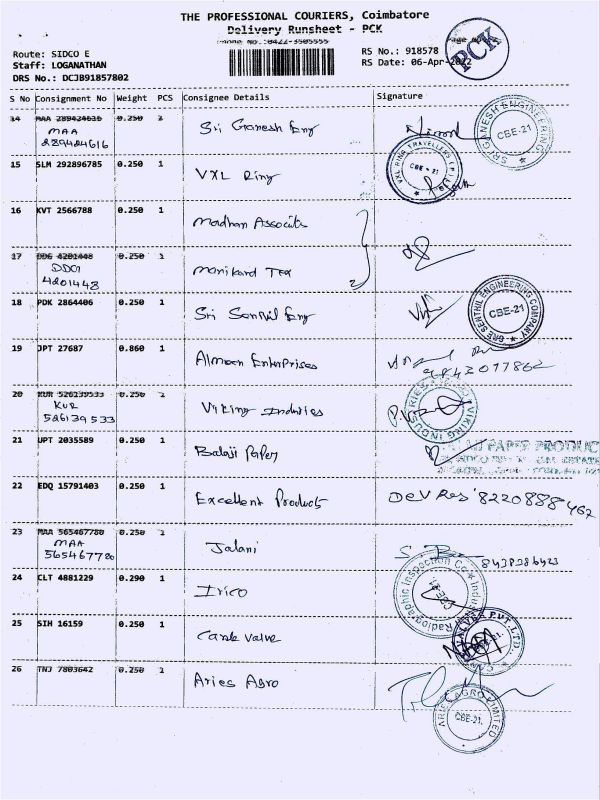 THE PROFESSIONAL COURIERS, Coimbatore
Delivery Runsheet - PCK
Phone No.:0422-3505555
Route: SIDCO E
Staff: LOGANATHAN
DRS No.: DCJB91857802
RS No.: 918578
RS Date: 06-Apr-2022
PCK
S No Consignment No Weight PCS Consignee Details Signature
14 MAA 289424616 0.250 1 Sri Ganesh Eng
MAA
289424616
SRI GANESH ENGINEERING
CBE-21
15 SLM 292896785 0.250 1 VXL Ring
VXL RING TRAVELLERS (P) Ltd
CBE-21
16 KVT 2566788 0.250 1 Madhan Associts
17 DDG 4201448 0.250 1 Manikard Tex
4201448
18 PDK 2864406 0.250 1 Sri Senthil Eng
SRE SENTHIL ENGINEERING COMPANY
CBE-21
19 JPT 27687 0.860 1 Almeen Enterprises
9842077862
20 KUR 526139533 0.250 1 Viking Industies
KUR
526139533
VIKING INDUSTRIES
21 UPT 2035589 0.250 1 Balaji Paper
PAPER PRODUC
22 EDQ 15791403 0.250 1 Excellent Product
8220888462
23 MAA 565467780 0.250 1 Jalani
MAA
565467780
8438386423
24 CLT 4881229 0.290 1 Irico
Radiographic Inspection Co
CBE-21
25 SIH 16159 0.250 1 Cank Valve
VALVES PVT. LTD.
CBE-21.
26 TNJ 7803642 0.250 1 Aries Agro
ARIES AGRO LIMITED
CBE-21.